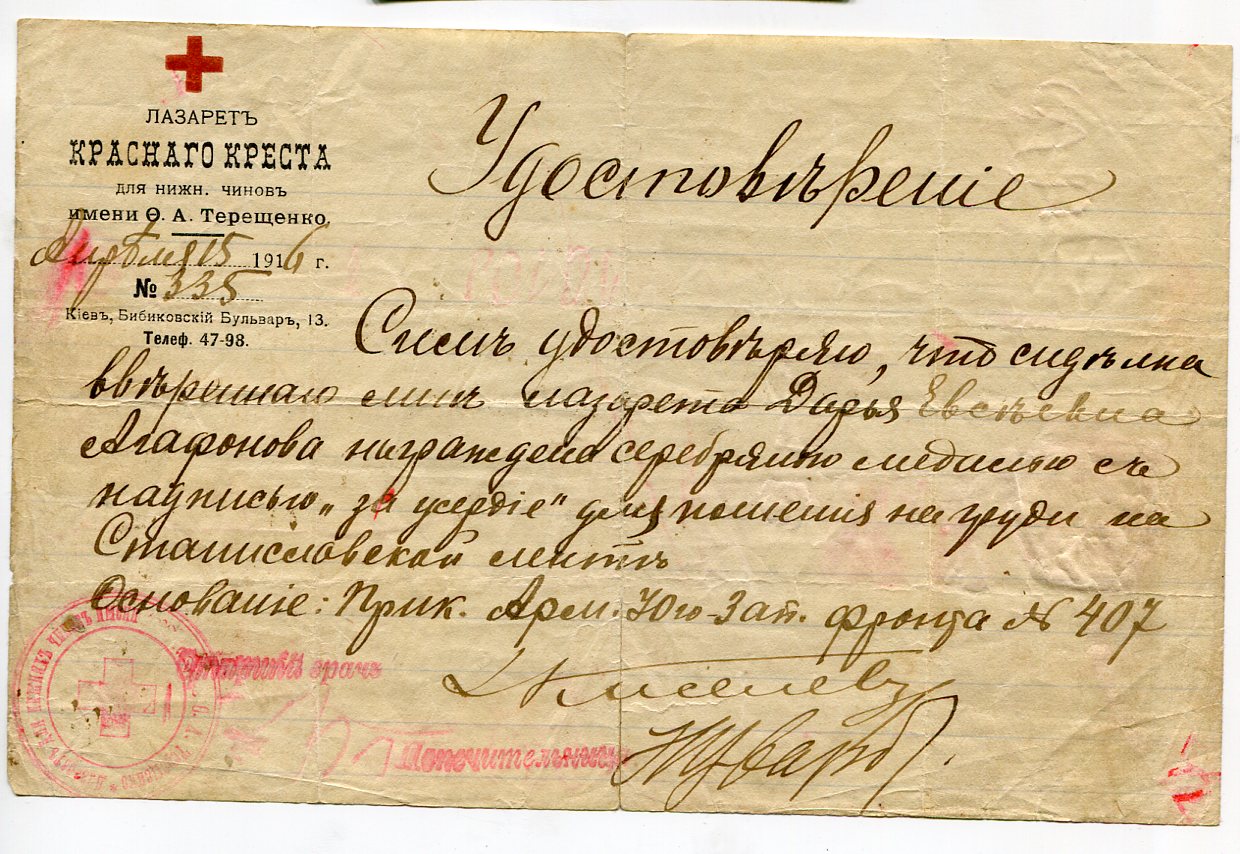 ЛАЗАРЕТЪ
КРАСНАГО КРЕСТА
ДЛЯ НИЖН. ЧИНОВЪ
имени Ѳ. А. Терещенко.
Апрѣля 15 1916 г.
№ 335
Кіевъ, Бибиковскій Бульваръ, 13.
Телеф. 47-98.
Удостовѣреніе
Симъ удостовѣряю, что сидѣлка
ввѣреннаго мнѣ лазарета Дарья Евсѣевна
Агафонова награждена серебряною медалью съ
надписью „за усердіе" для ношенія на груди на
Станиславской лентѣ
Основаніе: Прик. Арм. Юго-Зап. фронта № 407
Старшій врачъ
Киселевъ
Попечительница